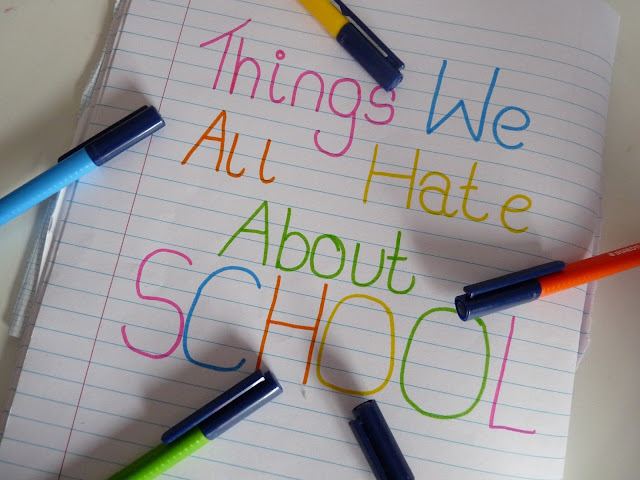 Things We
All Hate
About
SCHOOL